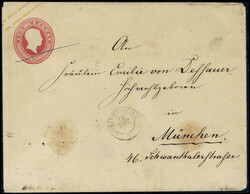 An
Fräulein Emilie von Dessauer
Hochwohlgeboren
in
München.
46. Schwanthalerstraße